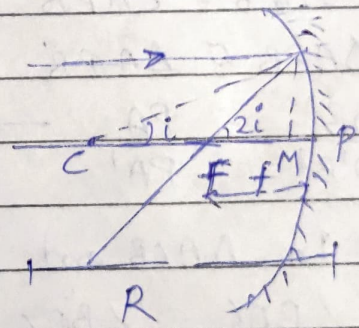 i 2i
C F f M P
R